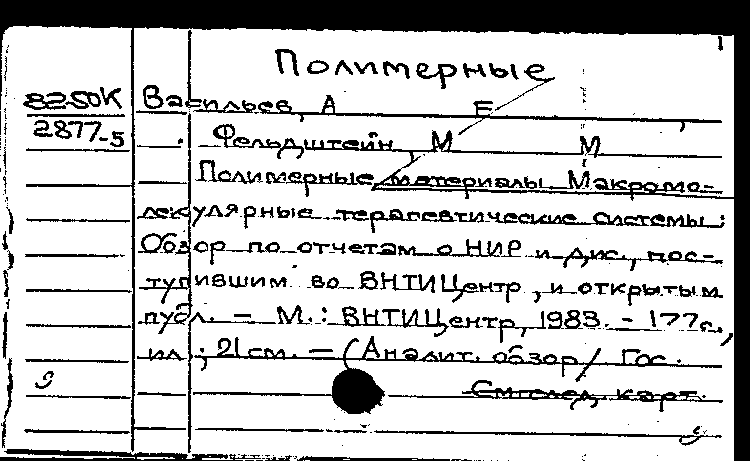 Полимерные
8250К Васильев, А Е
2877-5 Фельдштейн, М М
Полимерные материалы. Макромо-
лекулярные терапевтические системы:
Обзор по отчетам о НИР и дис., пос-
тупившим во ВНТИЦентр, и открытым
публ. – М.: ВНТИЦентр, 1983. - 177с.,
ил.; 21см. – (Аналит. обзор / Гос.
См. след. карт.